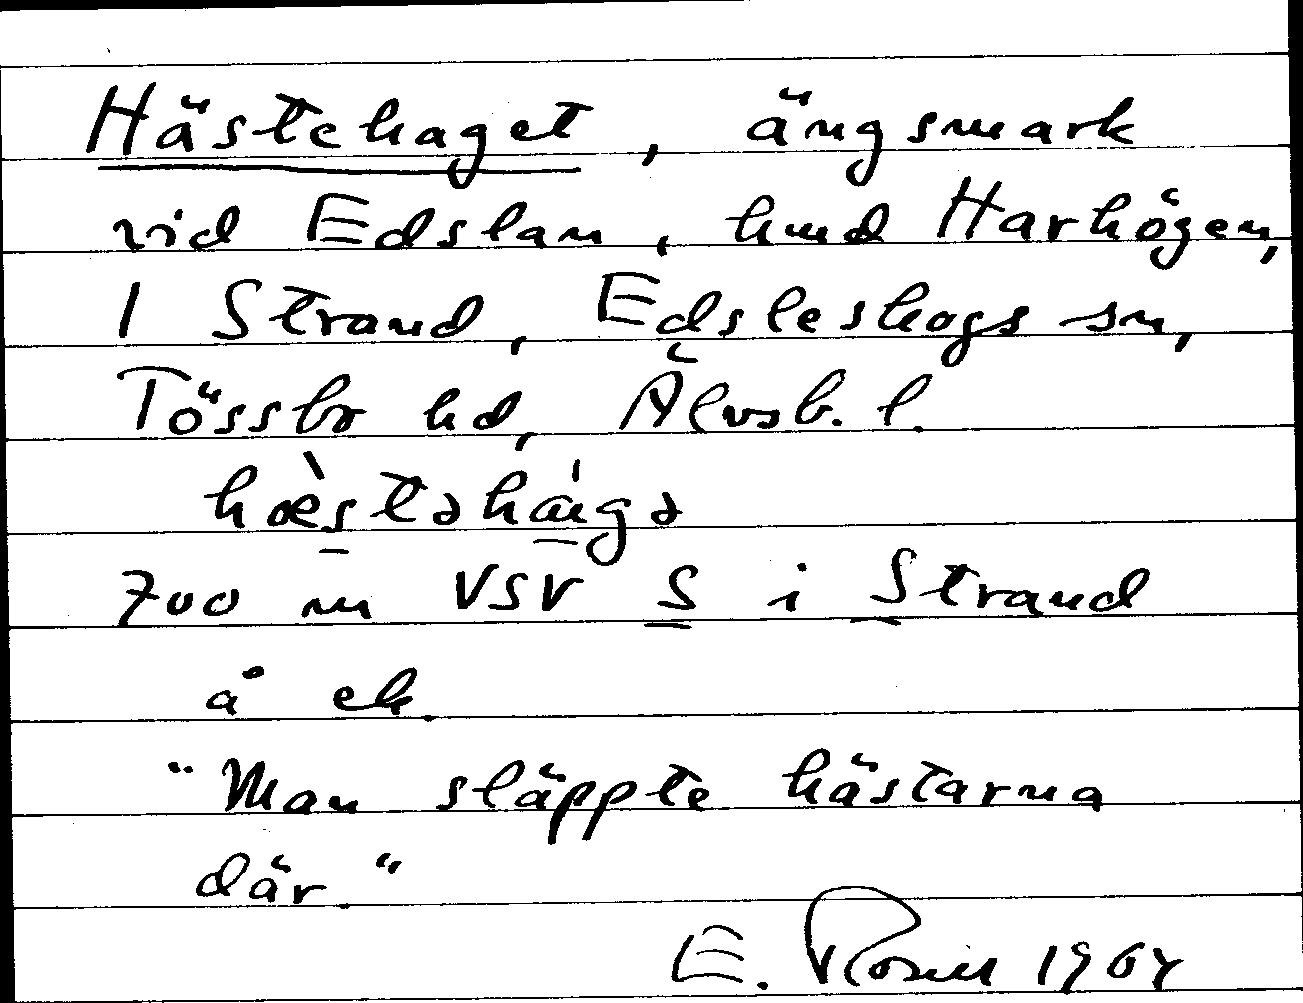 Hästehaget, ängsmark
vid Edslan, hmd Harhögen,
1 Strand, Edsleskogs sn,
Tössbo hd, Älvsb. l.
hæ̀stəháigə
700 m VSV S i Strand
å ek.
"Man släppte hästarna
där."
E. Rosell 1964